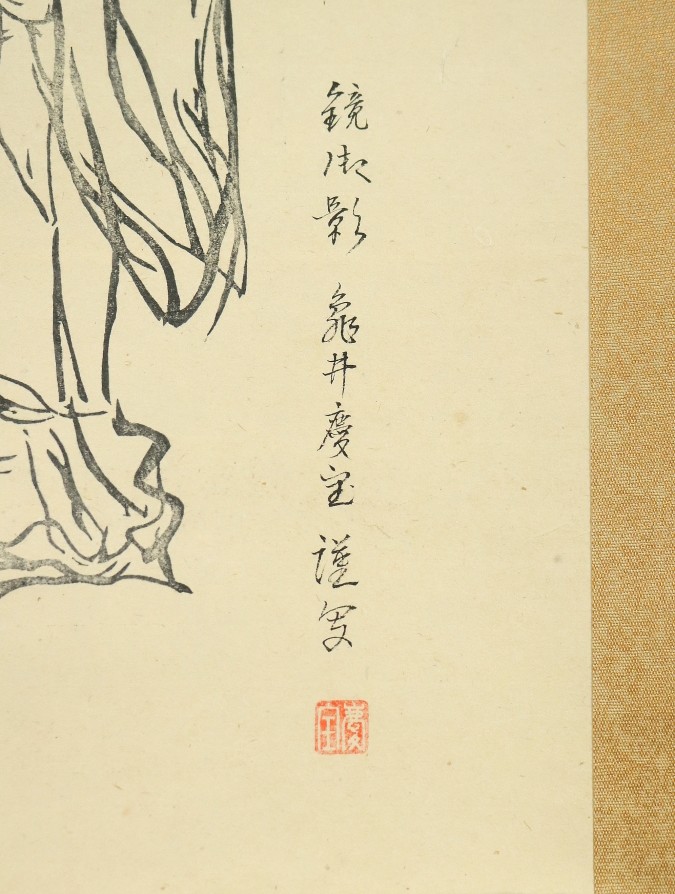 鏡御影 龜井慶宝 謹写
慶宝